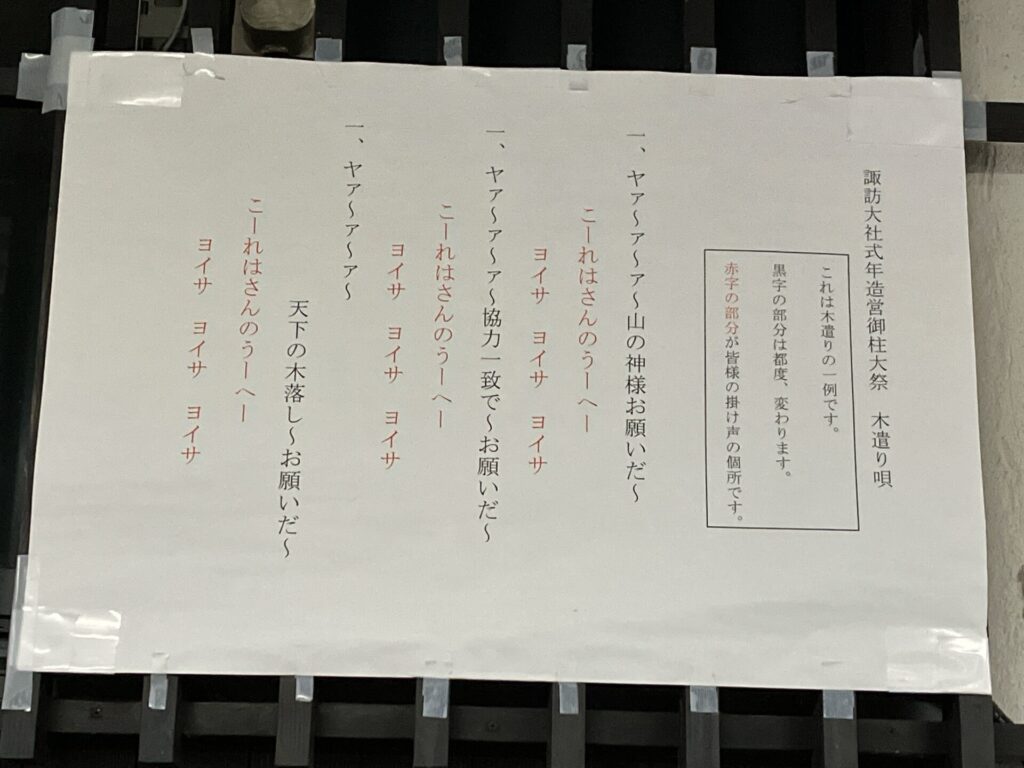 諏訪大社式年造営御柱大祭　木遣り唄
これは木遣りの一例です。
黒字の部分は都度、変わります。
赤字の部分が皆様の掛け声の個所です。
一、ヤァ～ァ～ァ～山の神様お願いだ～
こーれはさんのうーへー
ヨイサ　ヨイサ　ヨイサ
一、ヤァ～ァ～ァ～協力一致で～お願いだ～
こーれはさんのうーへー
ヨイサ　ヨイサ　ヨイサ
一、ヤァ～ァ～ァ～
天下の木落し～お願いだ～
こーれはさんのうーへー
ヨイサ　ヨイサ　ヨイサ